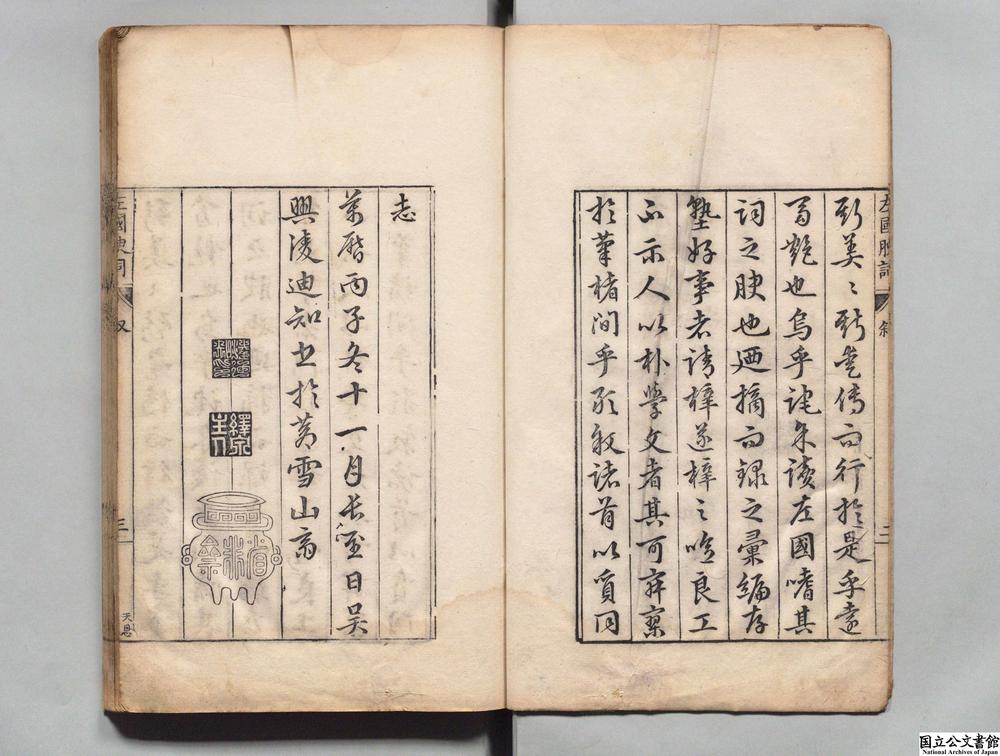 左國腴詞 敘 二
斯美〻斯愛傳而行於是乎遠
艷也烏乎詫余讀左國嗜其
詞之腴也廼摘而錄之彙編存
塾好事者請梓遂梓之嗟良工
不示人以朴學文者其可
於筆楮間乎聊敘諸首以質同
志
萬曆丙子冬十一月長至日吳
興凌迪知書於黃雪山齋
繹泉主人
左國腴詞 叙 三 天恩
国立公文書館
National Archives of Japan